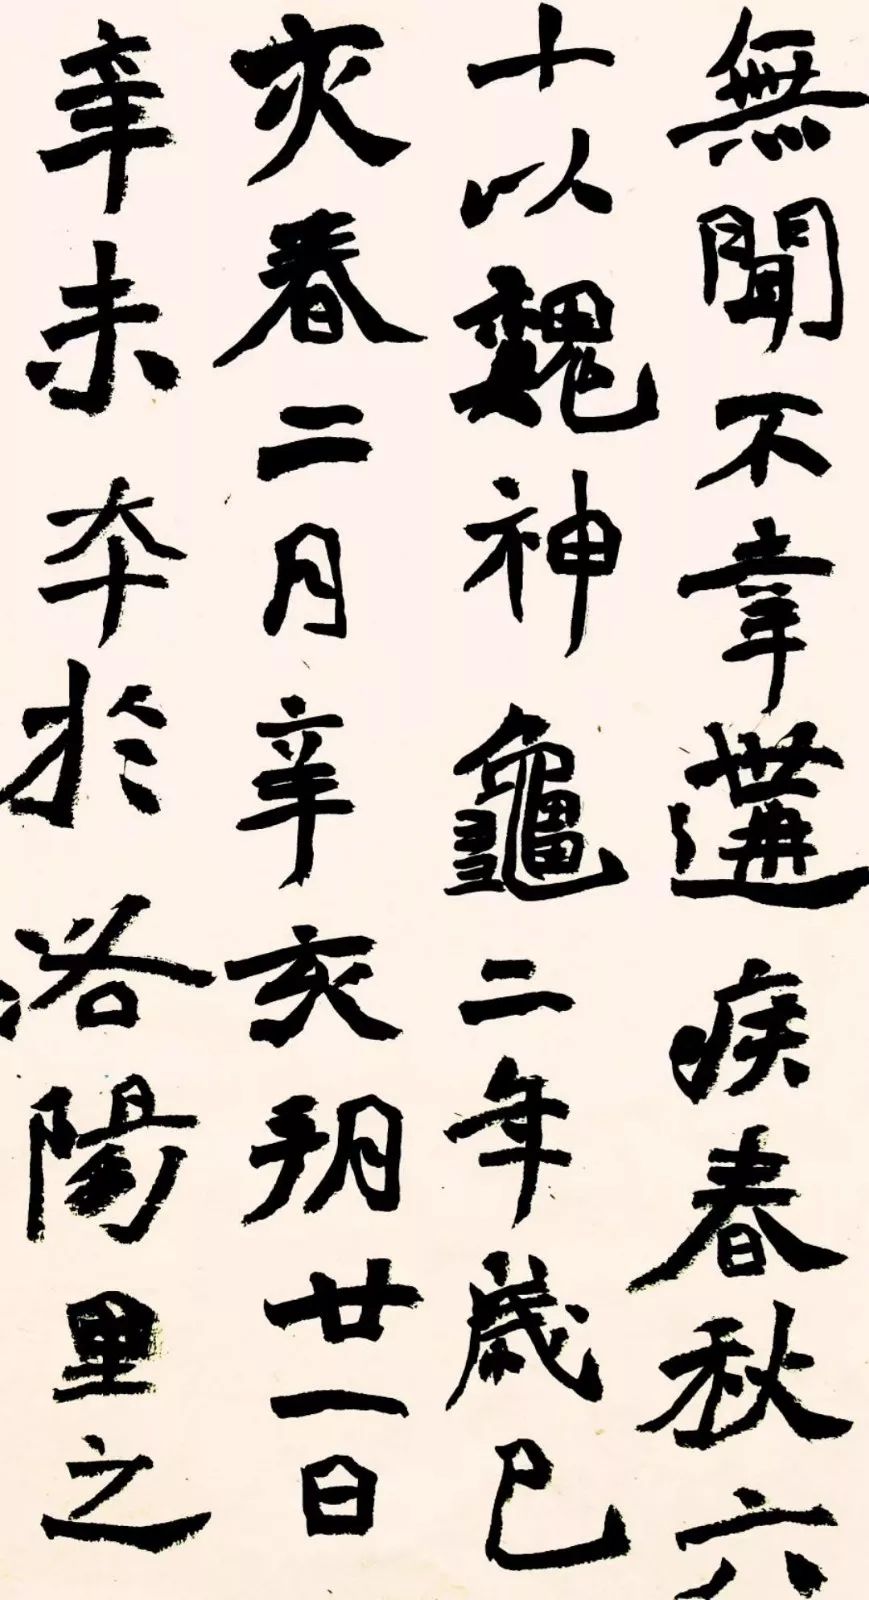 無聞不幸遘疾春秋六
十以魏神龜二年歲己
亥春二月辛亥朔廿一日
辛未卒於洛陽里之